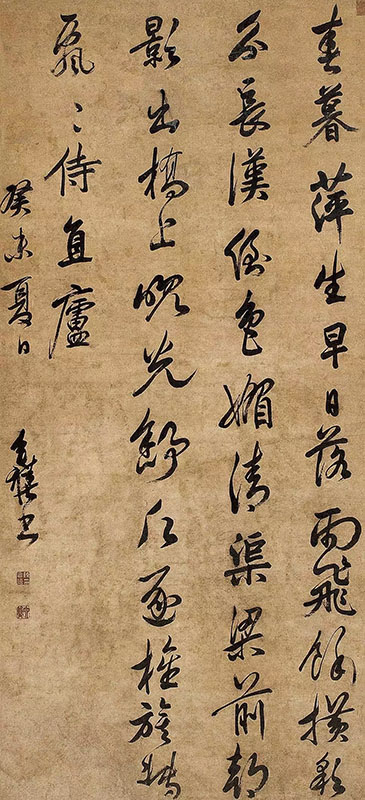 春暮萍生早日落雨飛餘橫彩
分長漢倒色媚清渠梁前朝
影出橋上晚光舒願逐旌旗轉
飄〻侍直廬
癸未夏日
書